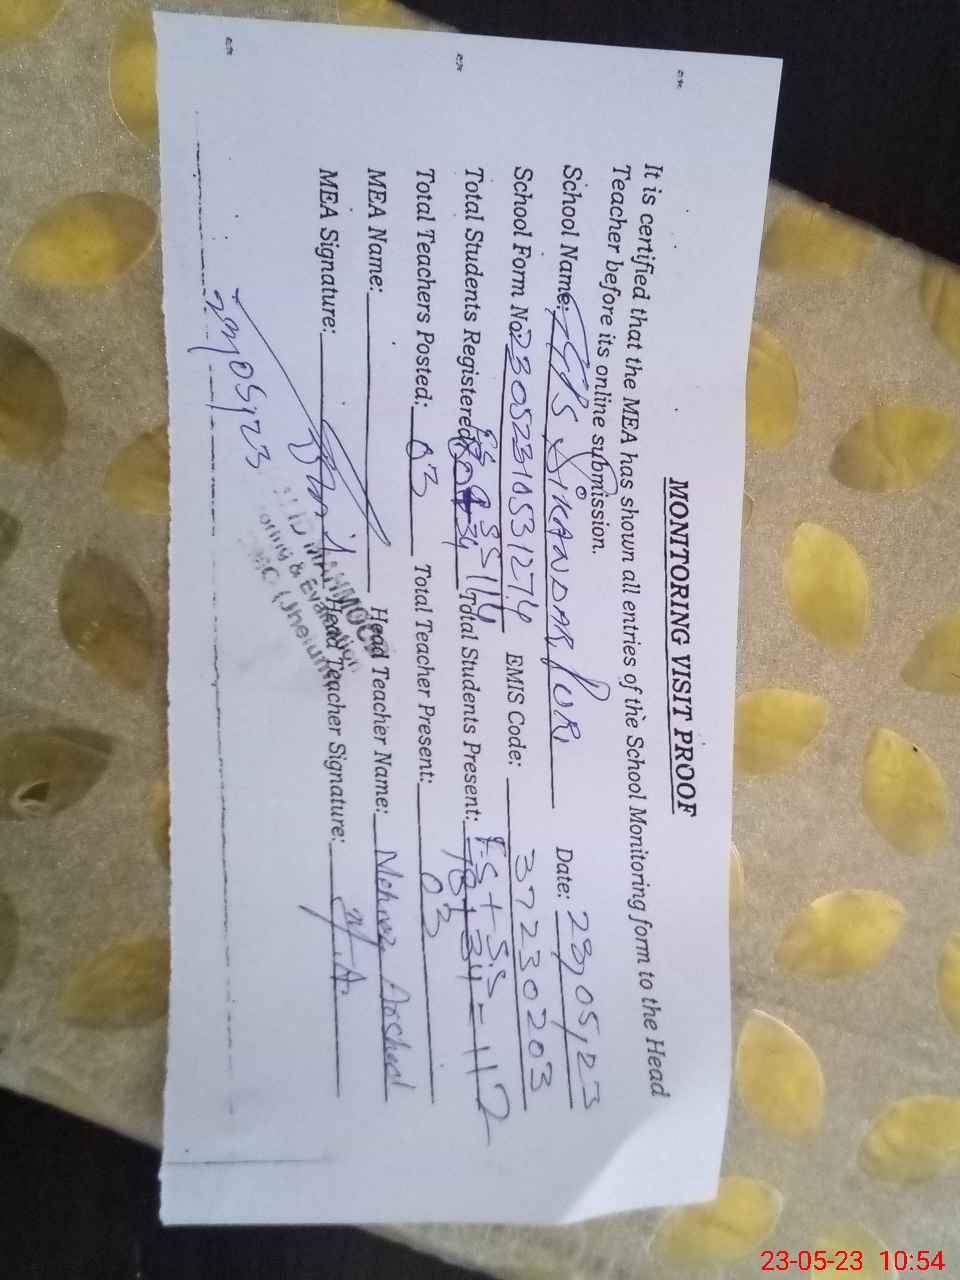 MONITORING VISIT PROOF
It is certified that the MEA has shown all entries of the School Monitoring form to the Head
Teacher before its online submission.
School Name: GGPS SIKANDAR PUR Date: 23/05/23
School Form No: 23052310531274 EMIS Code: 37230203
Total Students Registered: ES SS 80+34 114 Total Students Present: ES + SS 78+34=112
Total Teachers Posted: 03 Total Teacher Present: 03
MEA Name: Head Teacher Name: Mehnaz Arshed
MEA Signature: Head Teacher Signature: M.A
23/05/23
MAHMOOD
oring & Evaluation
(Jhelum)
23-05-23 10:54